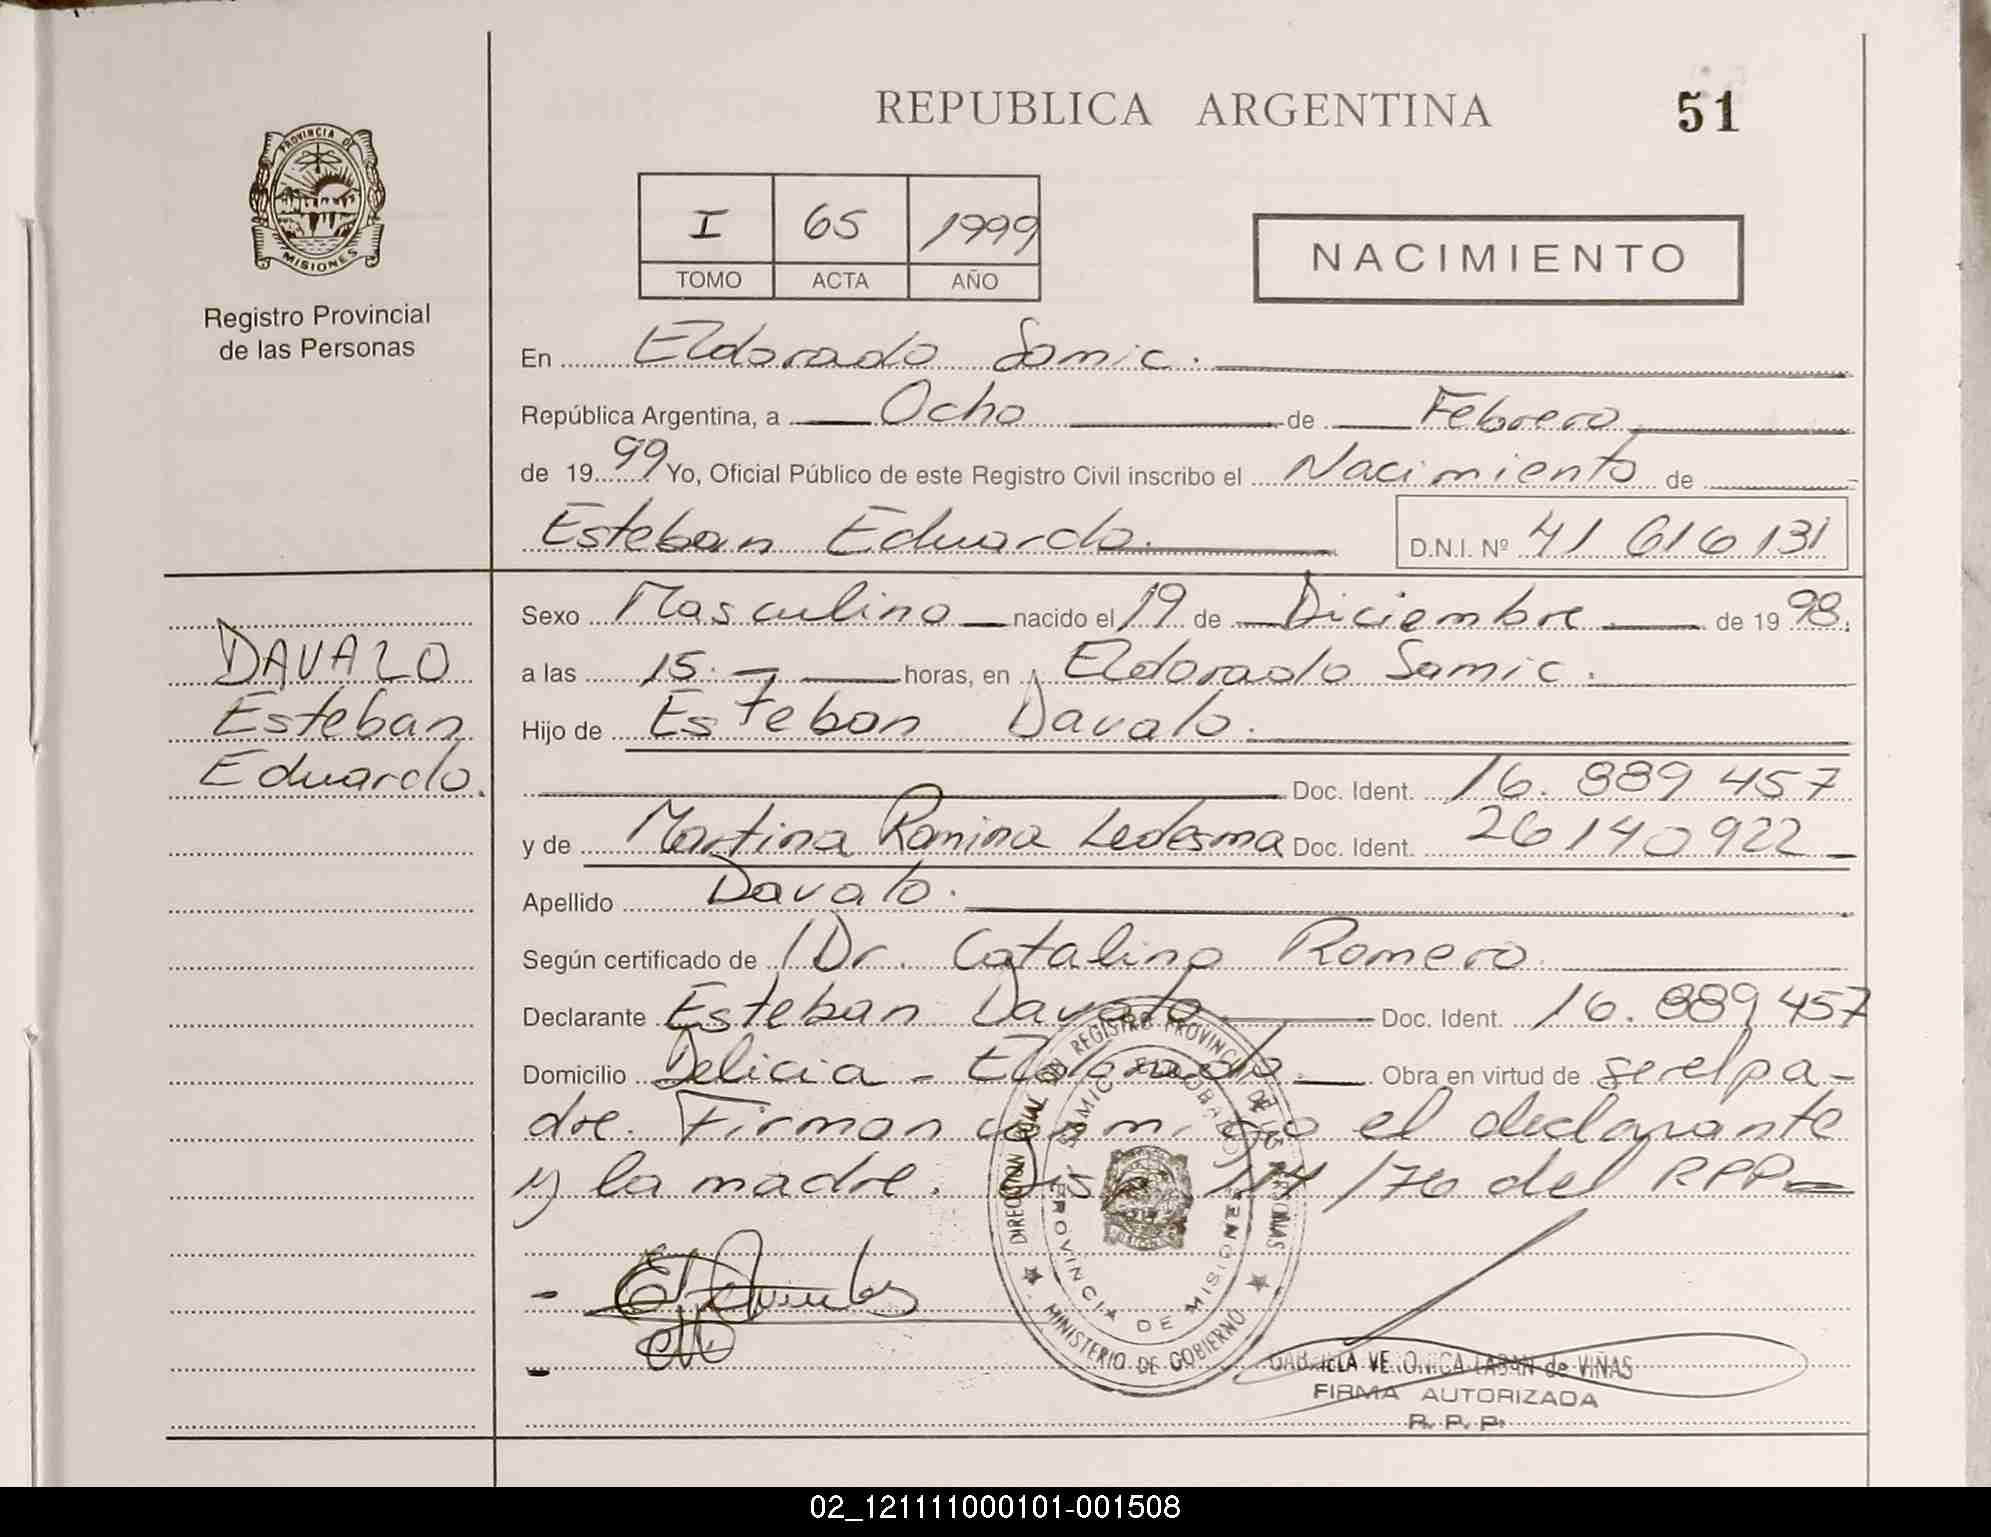 REPUBLICA ARGENTINA
51
PROVINCIA DE
MISIONES
Registro Provincial
de las Personas
I 65 1999
TOMO ACTA AÑO
NACIMIENTO
En Eldorado Samic.
República Argentina, a Ocho de Febrero
de 19 99 Yo, Oficial Público de este Registro Civil inscribo el Nacimiento de
Esteban Eduardo. D.N.I. Nº 41 616 131
DAVALO
Esteban
Eduardo.
Sexo Masculino nacido el 19 de Diciembre de 19 98.
a las 15. horas, en Eldorado Samic.
Hijo de Esteban Davalo.
Doc. Ident. 16.889 457
y de Martina Ramina Ledesma Doc. Ident. 26 140 922
Apellido Davalo.
Según certificado de Dr. Catalino Romero
Declarante Esteban Davalo Doc. Ident. 16.889 457
Domicilio Delicia - Eldorado. Obra en virtud de ser el pa-
dre. Firman conmigo el declarante
y la madre. Disp 114/76 del RPP
DIRECCION GRAL DEL REGISTRO PROVINCIAL DE LAS PERSONAS
MINISTERIO DE GOBIERNO
SAMIC ELDORADO
PROVINCIA DE MISIONES
GABRIELA VERONICA LABAN de VIÑAS
FIRMA AUTORIZADA
R. P. P.
02_121111000101-001508